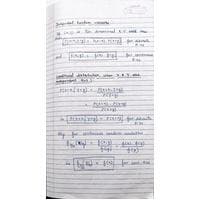 Independent Random variable
If (X,Y) is two dimensional R.V and are
P(X=x, Y=y) = P(X=x) . P(Y=y) for discrete
R.Vs
f(x,y) = f(x) . f(y) for cont.
R.Vs
Conditional distribution when X & Y are
independent R.Vs:
P(X=x | Y=y) = P(X=x, Y=y)
P(Y=y)
= P(X=x) . P(Y=y)
P(Y=y)
P(X=x | Y=y) = P(X=x) for discrete
R.Vs
for continuous random variables
= f(x,y) = f(x) . f(y)
f(y) f(y)
= f(x) for cont. R.Vs